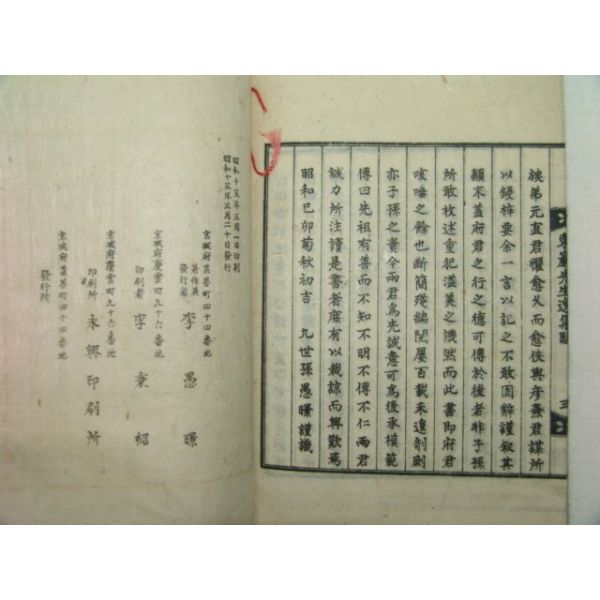 族弟元直君懼愈久而愈佚與彦蚤君謀所
以鋟梓要余一言以記之不敢固辭謹叙其
顚末盖府君之行之德可傳於後者非子孫
所敢枚述重犯溢美之濊然而此書即府君
咳唾之餘也斷簡殘編閱屡百載未遑剞劂
亦子孫之責今兩君爲先誠意可爲後承模範
傳曰先祖有善而不知不明不傳不仁兩君
誠力所注讀是書者庶有以裁諒而興歎焉
昭和己卯菊秋初吉 九世孫愚暻謹識
昭和十五年三月一日印刷
昭和十五年三月二十日發行
京城府蓮善町四十四番地
著作兼發行者 李愚暻
京城府慶雲町九十六番地
印刷者 李秉紹
京城府慶雲町九十六番地
印刷所 永興印刷所
京城府蓮善町四十四番地
發行所